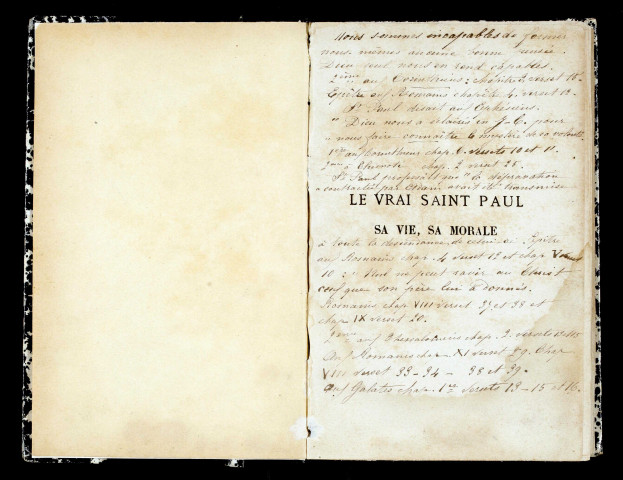 Nous sommes incapables de former
nous mêmes aucune bonne pensée.
Dieu seul nous en rend capables.
2ème aux Corinthiens: chapitre 3 verset
Epître aux Romains chapitre 4 verset
St Paul disait aux Ephésiens.
Dieu nous a éclairés en J-C. pour
nous faire connaître le mystère de sa volonté
1ère aux Corinthiens chap. versets 10 et 11.
2ème à Timothée chap. 2 verset 25.
St Paul professait que la dépravation
contractée par Adam avait été transmise
LE VRAI SAINT PAUL
SA VIE, SA MORALE
à toute la descendance de celui-ci. Epître
aux Romains chap. 4 verset 12 et chap V verset
10: Nul ne peut ravir au Christ
ceux que son père lui a donnés.
Romains chap VIII verset 37 et 38 et
chap IX verset 20.
2ème aux Thessaloniciens chap. 2. versets
Aux Romains chap XI verset 29. Chap
VIII verset 33-34 - 38 et 39.
Aux Galates chap. 1er versets 13-15 et 16.